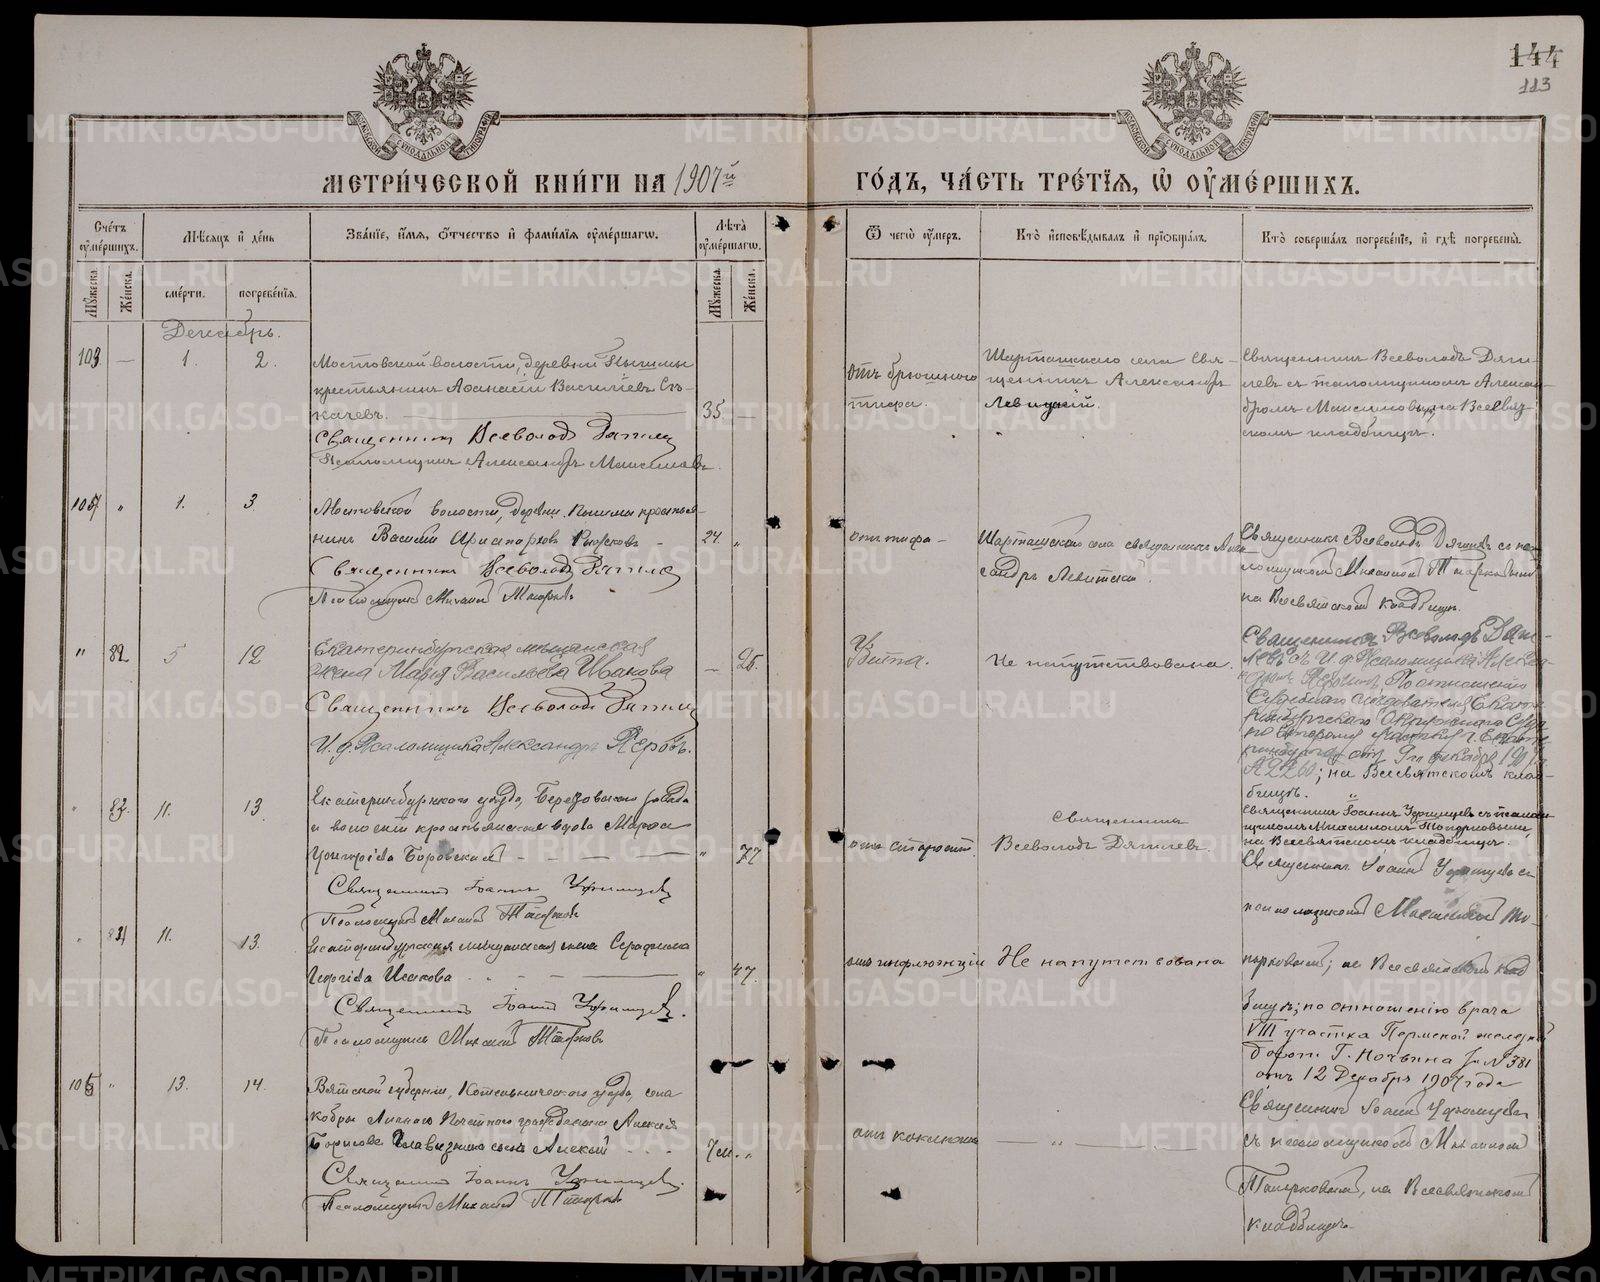 144
113
МЕТРИ́ЧЕСКОЙ КНИ́ГИ НА 1907й
ГО́ДЪ, ЧА́СТЬ ТРЕ́ТІѦ, Ѡ ОУМЕ́РШИХЪ.
Сче́тъ оуме́ршихъ.
Мꙋжеска.
Же́нска.
Мѣ́сѧцъ и де́нь
сме́рти.
погребе́нїѧ.
Зва́нїе, и́мѧ, ѻ́тчество и фами́лїѧ оуме́ршагѡ.
Лѣта̀ оуме́ршагѡ.
Мꙋжеска.
Же́нска.
Ѿ чегѡ̀ оу́меръ.
Кто̀ исповѣ́дывалъ и прїѡбща́лъ.
Кто̀ соверша́лъ погребе́нїе, и гдѣ̀ погребены̀.
Декабрь.
103 — 1. 2.
Мостовской волости, деревни Пышмы
крестьянинъ Аѳанасій Василіевъ Ск-
качевъ. 35 —
Священникъ Всеволодъ Дягилев
Псаломщикъ Александръ Максимовъ
отъ брюшного
тифа.
Шарташскаго села Свя-
щенникъ Александръ
Левицкій.
Священникъ Всеволодъ Дяги-
левъ с псаломщикомъ Алексан-
дромъ Максимовымъ на Всесвят-
скомъ кладбищѣ.
104 " 1. 3
Мостовской волости, деревни Пышмы крестья-
нинъ Василій Аристарховъ 24. "
Священникъ Всеволодъ Дягилев
Псаломщикъ Михаилъ Топорковъ
отъ тифа -
Шарташскаго села священникъ Алек-
сандръ Левитскій.
Священникъ Всеволодъ Дягилевъ съ пса-
ломщикомъ Михаиломъ Топорковымъ
на Всесвятскомъ кладбищѣ.
" 82 5 12
Екатеринбургская мѣщанская
жена Марія Васильева Ивакова — 25.
Священникъ Всеволодъ Дягилев
И. д. Псаломщика Александръ Перовъ.
Убита.
Не напутствована.
Священникъ Всеволодъ Дяги-
левъ съ И. д. Псаломщика Алексан-
дромъ Перовымъ, По отношенію
Судебнаго Слѣдователя Екате-
ринбургскаго Окружного Суда
по второму участку г. Екате-
ринбурга отъ 9го декабря 1907 г.
№ 2260; на Всесвятскомъ клад-
бищѣ.
" 83. 11. 13
Екатеринбургскаго уѣзда, Березовскаго завода
и волости крестьянская вдова Марѳа
Григорьева Боровская — " 77
Священникъ Іоаннъ Уфимцевъ
Псаломщикъ Михаилъ Топорковъ
отъ старости.
Священникъ
Всеволодъ Дягилев.
Священникъ Іоаннъ Уфимцевъ съ псалом-
щикомъ Михаиломъ Топорковымъ,
на Всесвятскомъ кладбищѣ.
" 84 11. 13.
Екатеринбургская мѣщанская жена Серафима
Георгіева Исакова — " 47.
Священникъ Іоаннъ Уфимцевъ.
Псаломщикъ Михаилъ Топорковъ
отъ инфлюэнціи
Не напутствована
Священникъ Іоаннъ Уфимцевъ съ
псаломщикомъ Михаиломъ То-
порковымъ; на Всесвятскомъ клад-
бищѣ; по отношенію врача
VIII участка Пермской желѣзной
дороги Г. за № 381
отъ 12 Декабря 1907 года
105 " 13. 14.
Вятской губерніи, Котельническаго уѣзда, села
Кобры Личнаго Почетнаго гражданина Алексѣя
Борисова сынъ Алексій 7 м. "
Священникъ Іоаннъ Уфимцевъ.
Псаломщикъ Михаилъ Топорковъ
отъ коклюша
— " —
Священникъ Іоаннъ Уфимцевъ
съ псаломщикомъ Михаиломъ
Топорковымъ, на Всесвятскомъ
кладбищѣ.
METRIKI.GASO-URAL.RU